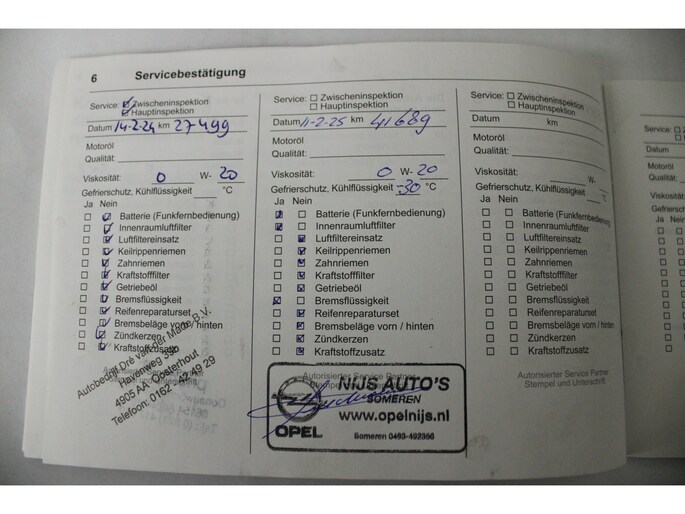 6 Servicebestätigung
Service: Zwischeninspektion
Hauptinspektion
Datum 14-2-24 km 27499
Motoröl
Qualität:
Viskosität: 0 W- 20
Gefrierschutz, Kühlflüssigkeit °C
Ja Nein
Batterie (Funkfernbedienung)
Innenraumluftfilter
Luftfiltereinsatz
Keilrippenriemen
Zahnriemen
Kraftstofffilter
Getriebeöl
Bremsflüssigkeit
Reifenreparaturset
Bremsbeläge vorn / hinten
Zündkerzen
Kraftstoffzusatz
Autobedrijf Dré van der Made B.V.
Havenweg 39b
4905 AA Oosterhout
Telefoon: 0162 - 42 49 29
Service: Zwischeninspektion
Hauptinspektion
Datum 11-2-25 km 41689
Motoröl
Qualität:
Viskosität: 0 W- 20
Gefrierschutz, Kühlflüssigkeit -30 °C
Ja Nein
Batterie (Funkfernbedienung)
Innenraumluftfilter
Luftfiltereinsatz
Keilrippenriemen
Zahnriemen
Kraftstofffilter
Getriebeöl
Bremsflüssigkeit
Reifenreparaturset
Bremsbeläge vorn / hinten
Zündkerzen
Kraftstoffzusatz
Autorisierter Service Partner
NIJS AUTO'S
SOMEREN
www.opelnijs.nl
OPEL
Someren 0493-492366
Service: Zwischeninspektion
Hauptinspektion
Datum km
Motoröl
Qualität:
Viskosität: W-
Gefrierschutz, Kühlflüssigkeit °C
Ja Nein
Batterie (Funkfernbedienung)
Innenraumluftfilter
Luftfiltereinsatz
Keilrippenriemen
Zahnriemen
Kraftstofffilter
Getriebeöl
Bremsflüssigkeit
Reifenreparaturset
Bremsbeläge vorn / hinten
Zündkerzen
Kraftstoffzusatz
Autorisierter Service Partner
Stempel und Unterschrift
Service:
Datum
Motoröl
Qualität:
Viskosität:
Gefrierschutz
Ja Nein